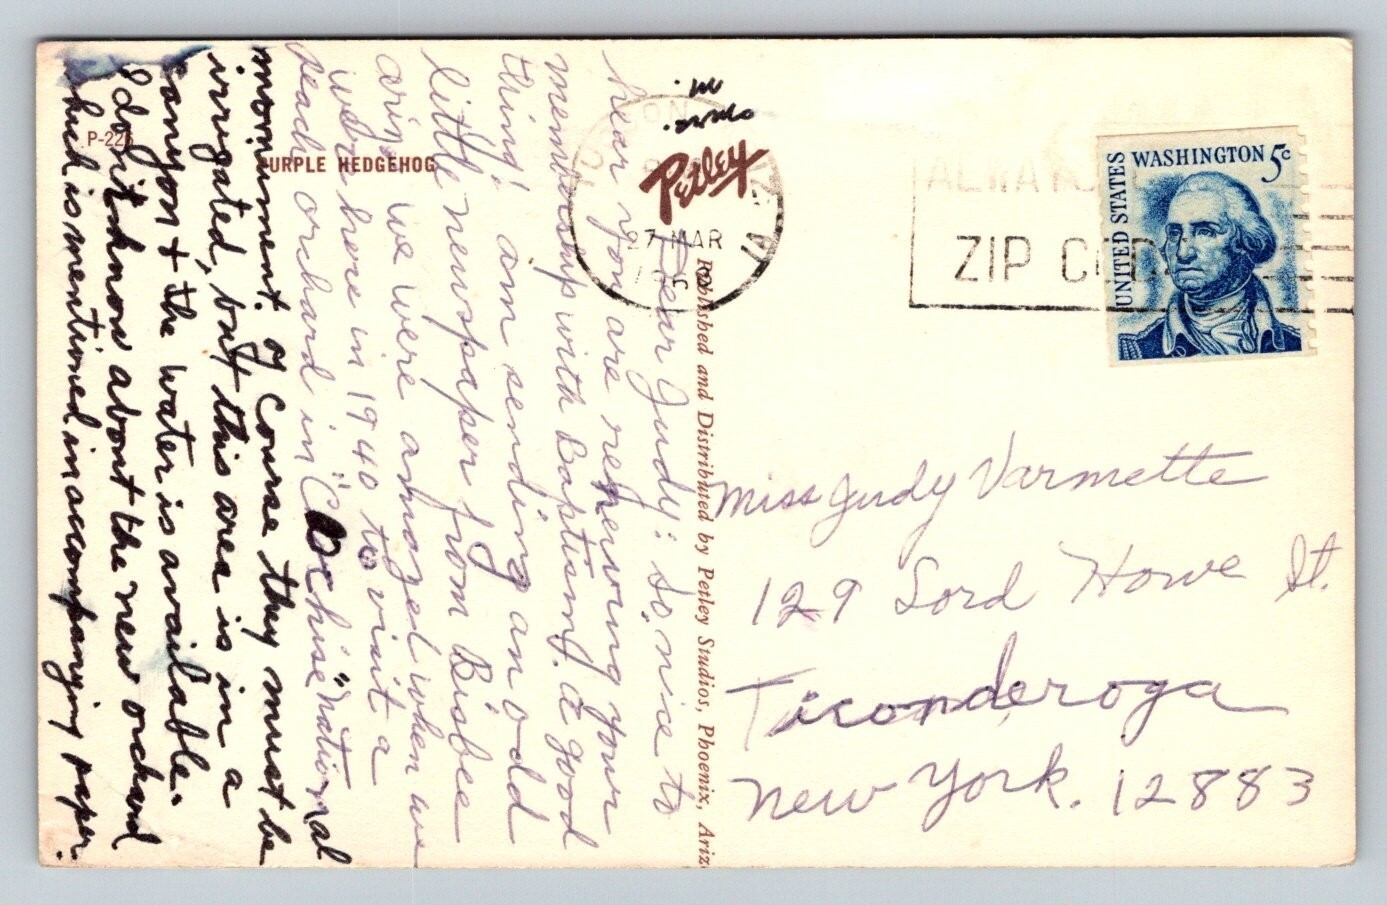 P-226
PURPLE HEDGEHOG
Petley
Published and Distributed by Petley Studios, Phoenix, Ariz
27 MAR
ALWAYS
ZIP CODE
UNITED STATES
WASHINGTON 5c
Dear Judy: So nice to
hear you are renewing your
membership with Baptism. A good
thing! am sending an odd
little newspaper from Bisbee
ariz. we were amazed when we
were here in 1940 to visit a
peach orchard in "Cochise" national
monument. Of course they must be
irrigated, but this area is in a
canyon & the water is available.
I don't know about the new orchard
which is mentioned in accompanying paper.
over.
m.
Miss Judy Varmette
129 Lord Howe St.
Ticonderoga
New York. 12883